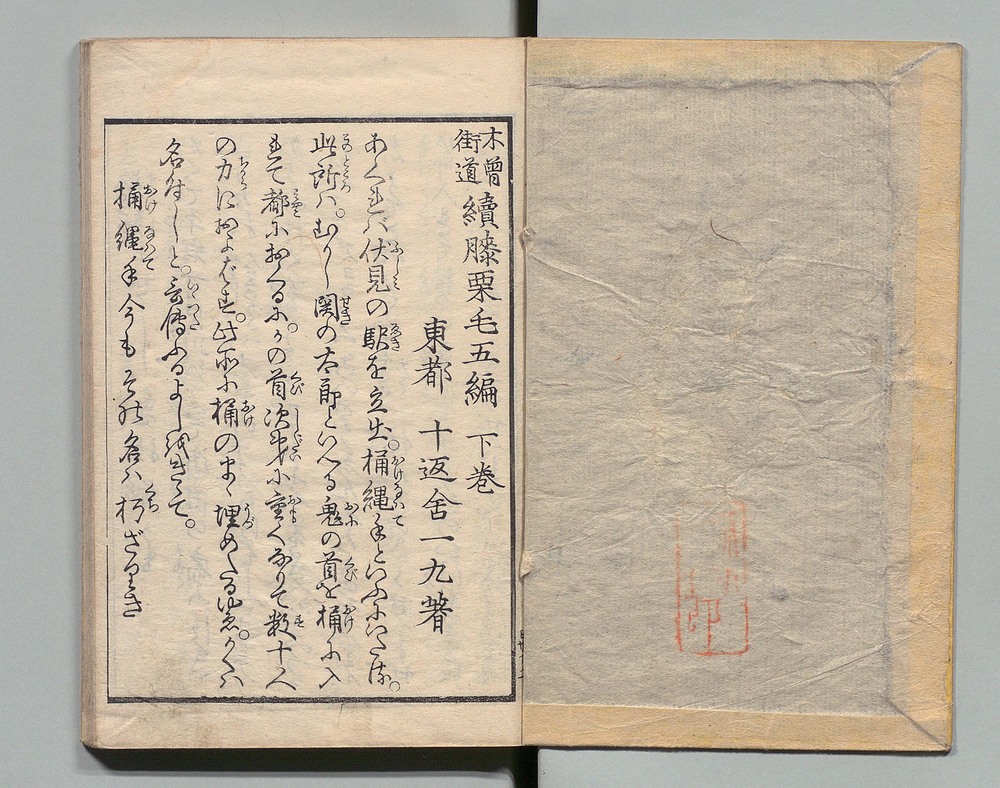 木曽街道 續膝栗毛五編 下巻
東都 十返舎一九著
あくれバ伏見の駅を立出。桶縄手といふにいたる。
此所ハ。むかし関の太郎といへる鬼の首を桶に入
て都におくるに。かの首次第に重くなりて数十人
の力におよばず。此所に桶のまゝ埋めたるゆゑ。かくハ
名付しと。言傳ふるよし
桶縄手今もその名ハ朽ざりき